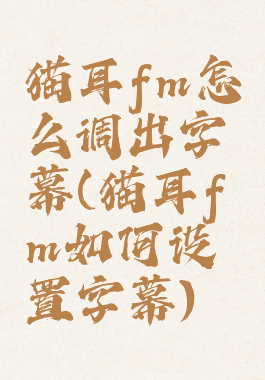 猫耳fm怎
么调出字
幕(猫耳f
m如何设
置字幕)